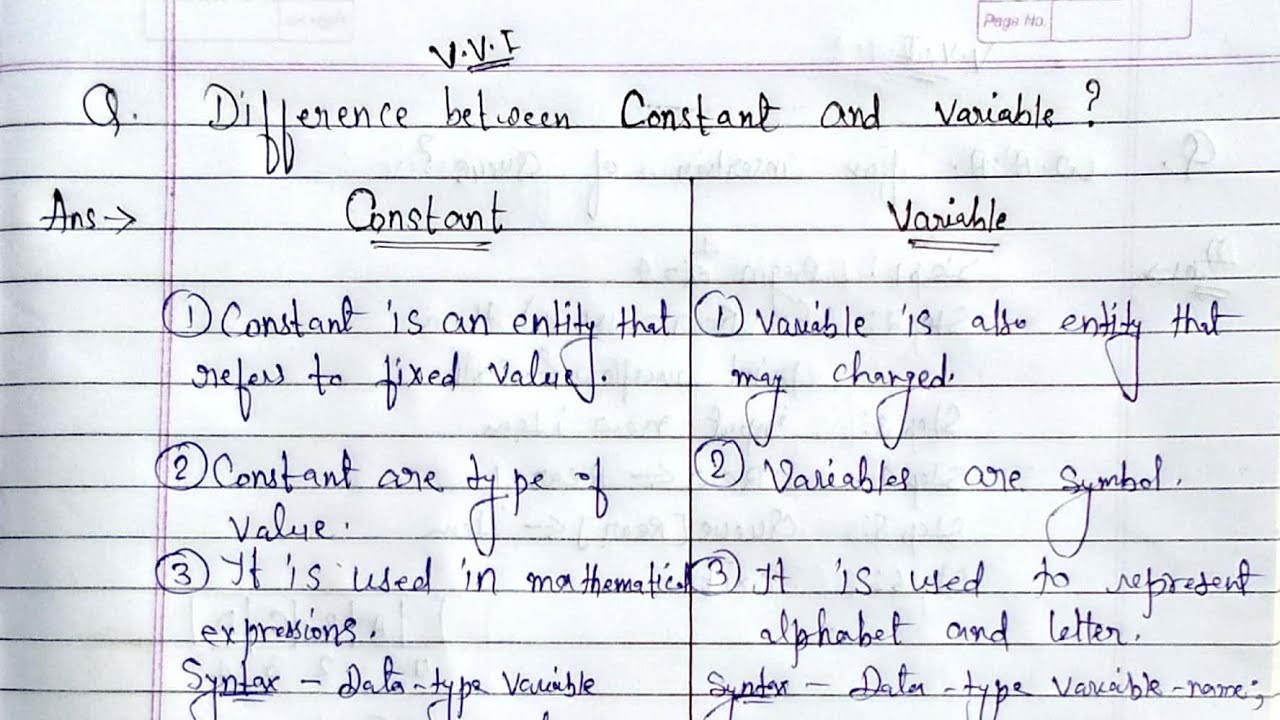 Page No.
V.V.I
Q. Difference between Constant and Variable?
Ans → Constant
① Constant is an entity that
refers to fixed value.
② Constant are type of
value.
③ It is used in mathematical
expressions.
Syntax - Data-type Variable
Variable
① Variable is also entity that
may changed.
② Variables are symbol.
③ It is used to represent
alphabet and letter.
Syntax - Data-type Variable-name;